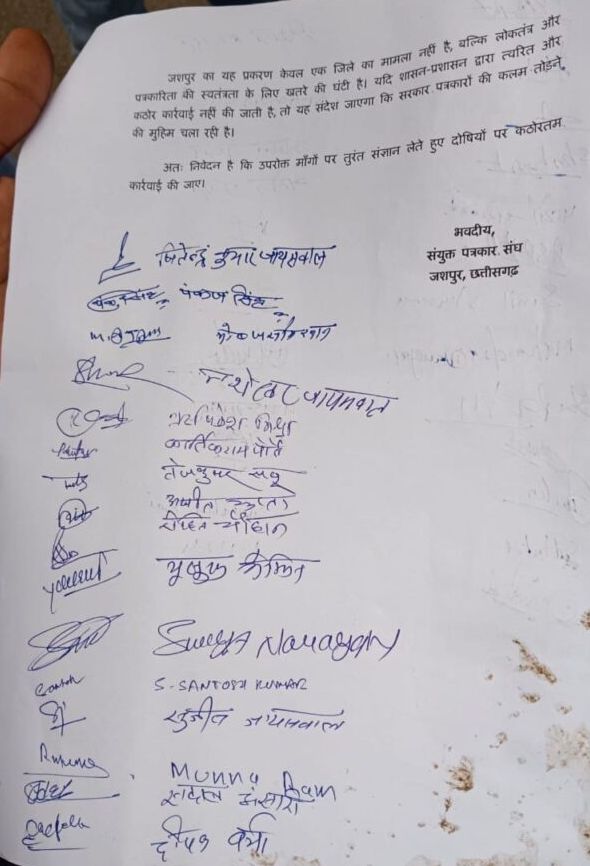 जशपुर का यह प्रकरण केवल एक जिले का मामला नहीं है, बल्कि लोकतंत्र और
पत्रकारिता की स्वतंत्रता के लिए खतरे की घंटी है। यदि शासन-प्रशासन द्वारा त्वरित और
कठोर कार्रवाई नहीं की जाती है, तो यह संदेश जाएगा कि सरकार पत्रकारों की कलम तोड़ने
की मुहिम चला रही है।
अतः निवेदन है कि उपरोक्त माँगों पर तुरंत संज्ञान लेते हुए दोषियों पर कठोरतम
कार्रवाई की जाए।
भवदीय,
संयुक्त पत्रकार संघ
जशपुर, छत्तीसगढ़
जितेन्द्र कुमार जायसवाल
पंकज सिंह
जायसवाल
कार्तिकराम पोर्ते
तेजकुमार साहू
गुप्ता
चौहान
Surya Narayan
S. SANTOSH KUMAR
जायसवाल
Munna Ram
अंसारी
दीपक वर्मा